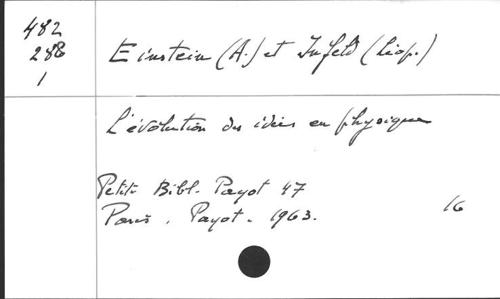 482
288
1
Einstein (A.) et Infeld (Léop.)
L'évolution des idées en physique
Petite Bibl. Payot 47
Paris, Payot. 1963.
16